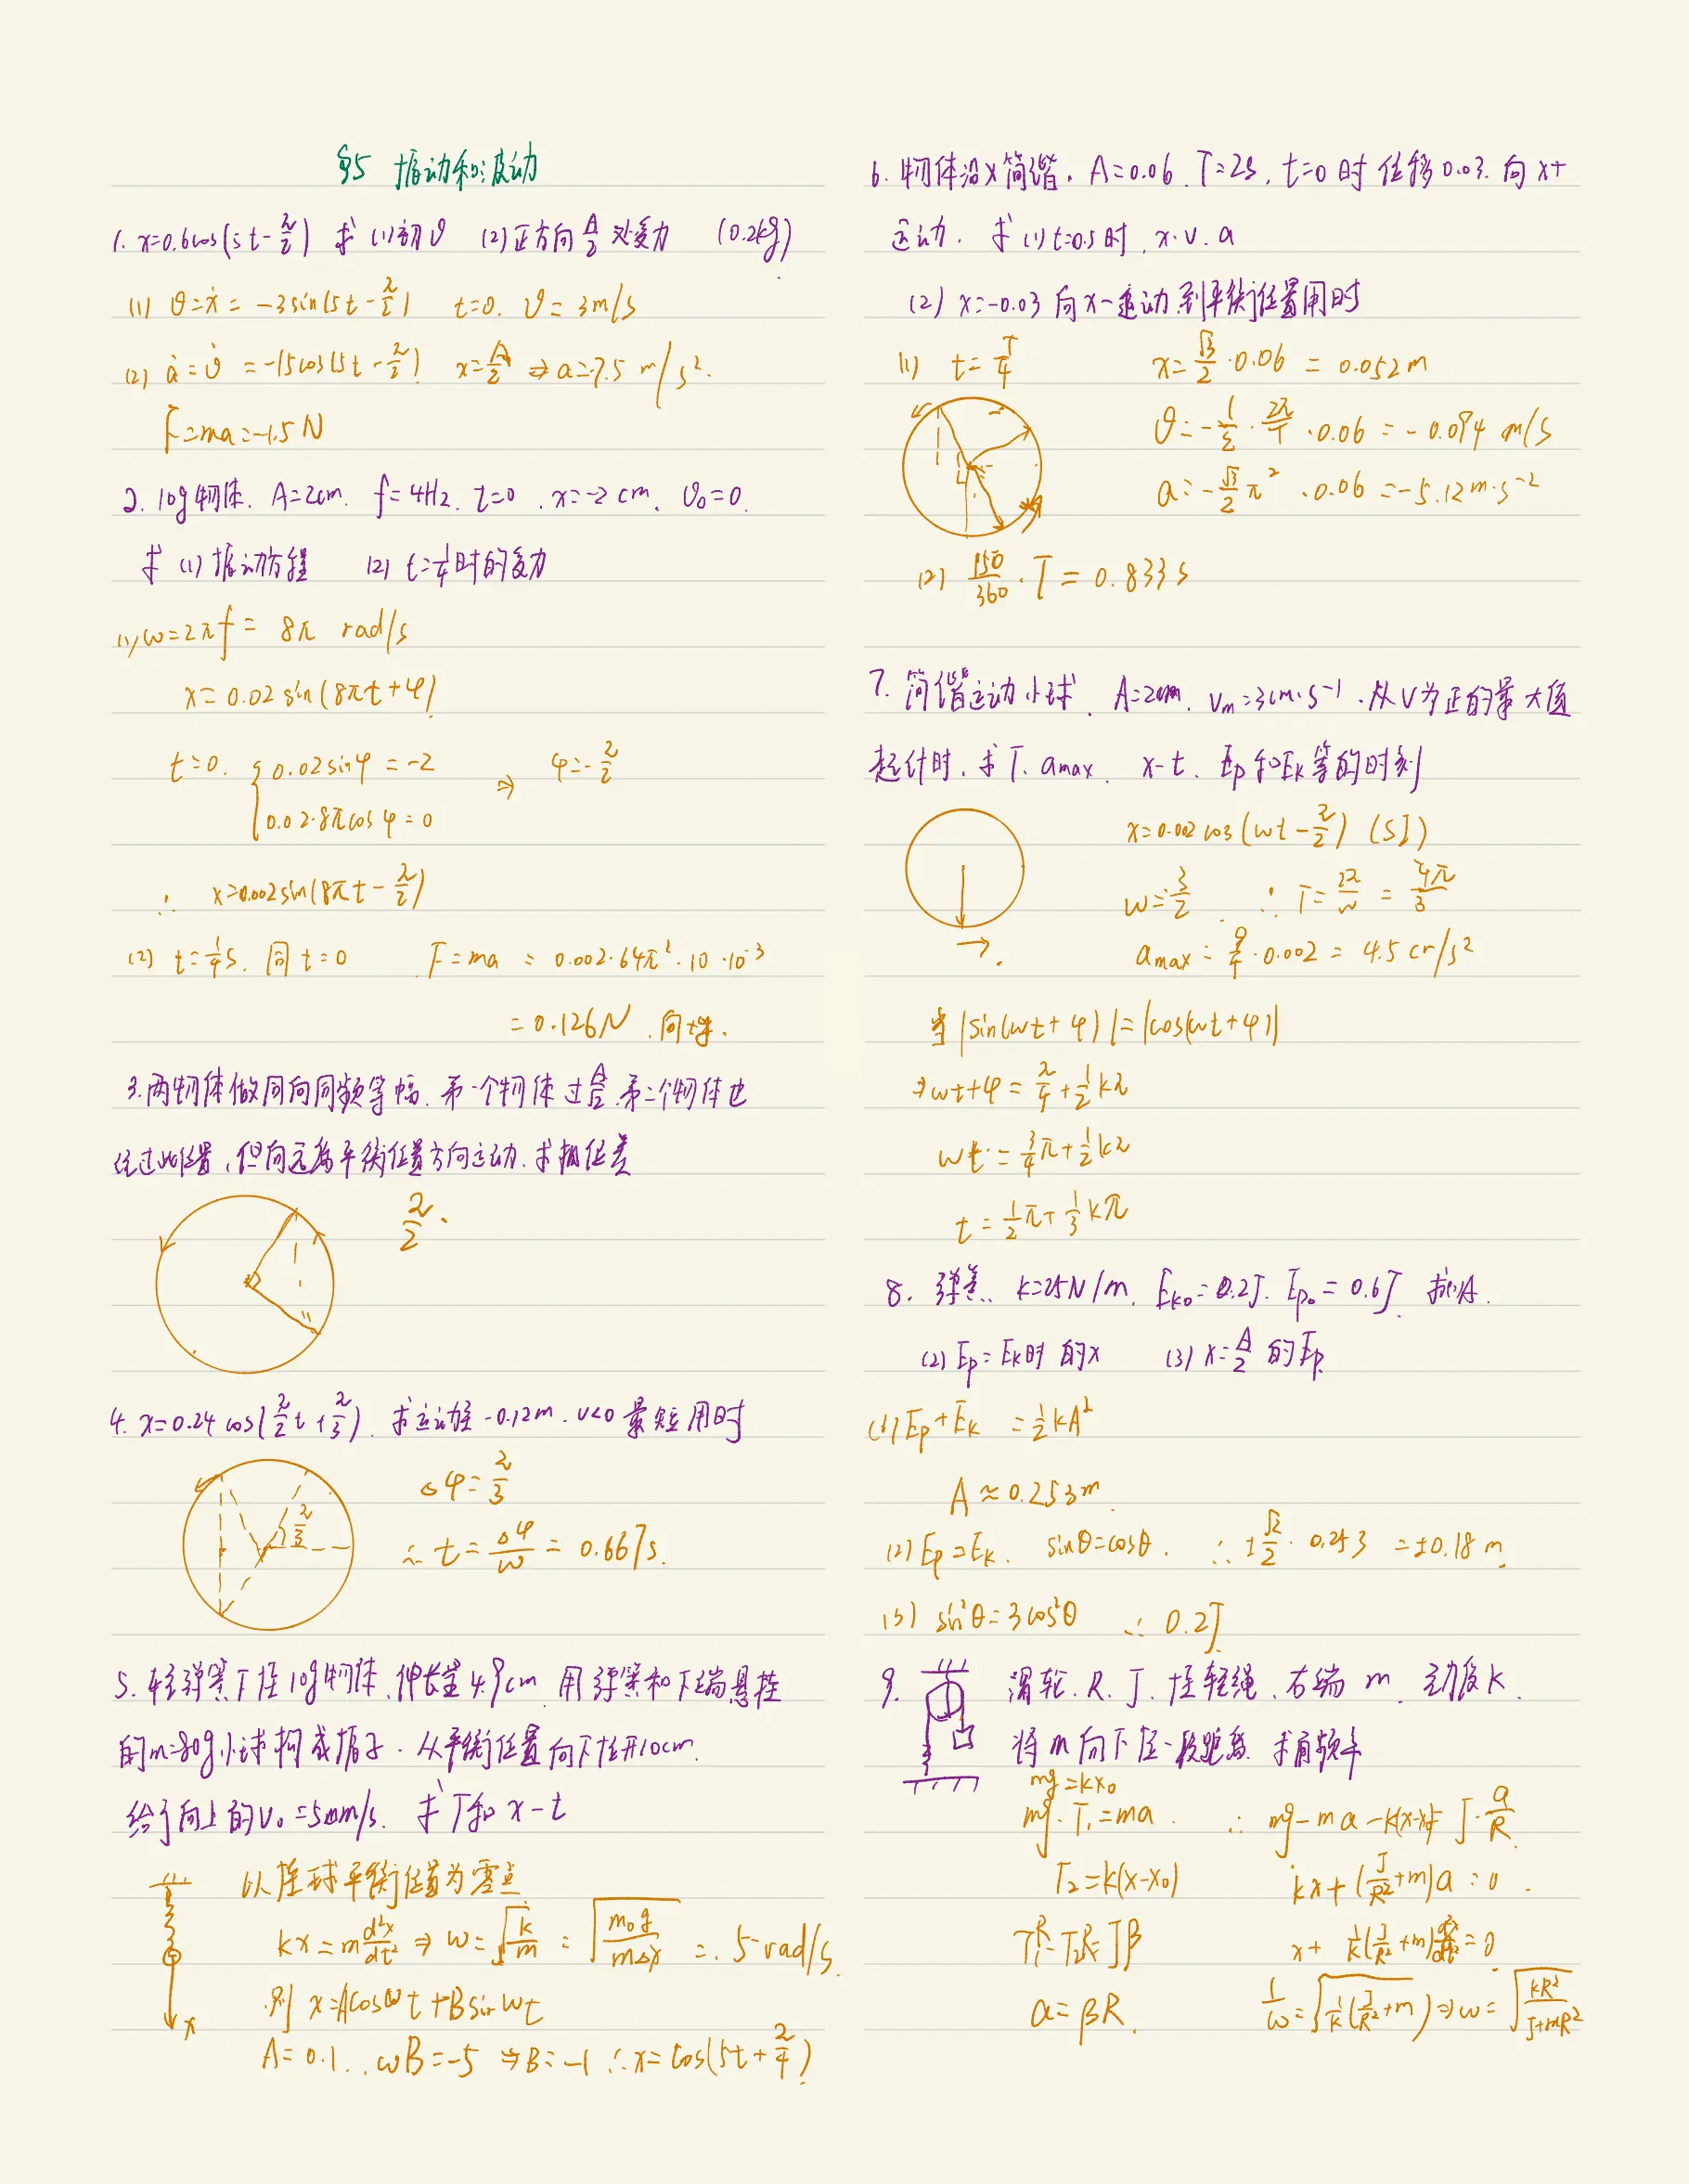 §5 振动和波动
1. x=0.6cos(5t-π/2) 求 (1)初v (2)正方向A/2处受力 (0.2kg)
(1) v=ẋ=-3sin(5t-π/2) t=0. v=3m/s
(2) a=v̇=-15cos(5t-π/2) x=A/2 ⇒a=-7.5 m/s².
F=ma=-1.5N
2. 10g物体. A=2cm. f=4Hz. t=0. x=-2cm. v₀=0.
求 (1)振动方程 (2) t=1/4时的受力
(1) ω=2πf= 8π rad/s
x=0.02sin(8πt+φ)
t=0. { 0.02sinφ=-2 ⇒ φ=-π/2
0.02·8πcosφ=0
∴ x=0.002sin(8πt-π/2)
(2) t=1/4s. 同t=0 F=ma=0.002·64π²·10·10⁻³
=0.126N.
3.两物体做同向同频等幅.第一个物体过A/2.第二个物体也
经过此位置,但向远离平衡位置方向运动.求相位差
π/2.
4. x=0.24cos(π/2t+π/3). 求运动至-0.12m. v<0最短用时
π/3
Δφ=π/3
∴ t=Δφ/ω=0.667s.
5. 轻弹簧下挂10g物体,伸长量4.9cm 用弹簧和下端悬挂
的m=80g小球构成振子. 从平衡位置向下拉开10cm.
给予向上的v₀=5m/s. 求T和x-t
以挂球平衡位置为零点
kx=m d²x/dt² ⇒ ω=√(k/m) = √(m₀g/mΔx) = 5 rad/s.
x
则 x=Acosωt+Bsinωt
A=0.1. ωB=-5 ⇒B=-1 ∴x=cos(5t+π/4)
6. 物体沿x简谐. A=0.06. T=2s. t=0时位移0.03. 向x+
运动. 求(1)t=0.5时. x.v.a
(2) x=-0.03向x-运动.到平衡位置用时
(1) t=T/4 x=√3/2·0.06=0.052m
v=-1/2·2π/T·0.06=-0.094 m/s
a=-√3/2π²·0.06=-5.12m·s⁻²
(2) 150/360·T=0.833s
7. 简谐运动小球. A=2cm. vₘ=3cm·s⁻¹.从v为正的最大值
起计时.求T. amax. x-t. Ep和Ek等的时刻
x=0.002cos(ωt-π/2) (SI)
ω=3/2. ∴ T=2π/ω=4π/3
amax=9/4·0.002=4.5cm/s²
当|sin(ωt+φ)|=|cos(ωt+φ)|
⇒ωt+φ=π/4+1/2kπ
ωt=3/4π+1/2kπ
t=1/2π+1/3kπ
8. 弹簧. k=25N/m. Ek₀=0.2J. Ep₀=0.6J 求(1)A.
(2) Ep=Ek时的x (3) x=A/2的Ep
(1) Ep+Ek=1/2kA²
A≈0.253m
(2) Ep=Ek. sinθ=cosθ. ∴ ±√2/2·0.253=±0.18m
(3) sin²θ=3cos²θ ∴ 0.2J
9. 滑轮.R.J.挂轻绳.右端m. 劲度k.
将m向下拉一段距离 求角频率
mg=kx₀
mg-T₁=ma. ∴ mg-ma-k(x-x₀)=J·a/R
T₂=k(x-x₀) kx+(J/R²+m)a=0.
T₁R-T₂R=Jβ x+1/k(J/R²+m)d²x/dt²=0
a=βR. 1/ω=√(1/k(J/R²+m)) ⇒ω=√(kR²/J+mR²)